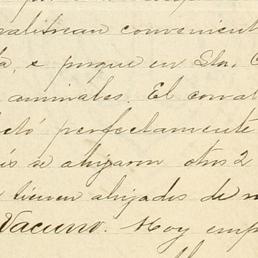 convenient
a, e porque en Sta. C
animales. El corral
perfectamente
is se ahijaron otros 2
tienen ahijados de m
Vacuno. Hoy emp